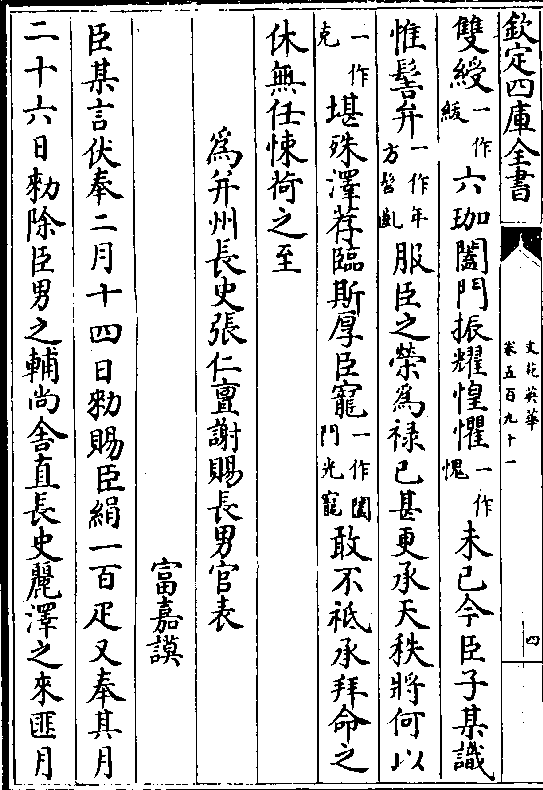 欽定四庫全書
文苑英華
卷五百九十一
四
雙綬一作緩六珈闔門振耀惶懼一作愧未已今臣子某識
惟髫弁一作年方髫齓服臣之榮為禄已甚更承天秩將何以
一作克堪殊澤荐臨斯厚臣寵一作闔門光寵敢不祗承拜命之
休無任悚荷之至
為并州長史張仁亶謝賜長男官表
富嘉謨
臣某言伏奉二月十四日勑賜臣絹一百疋又奉其月
二十六日勑除臣男之輔尚舍直長史麗澤之來匪月